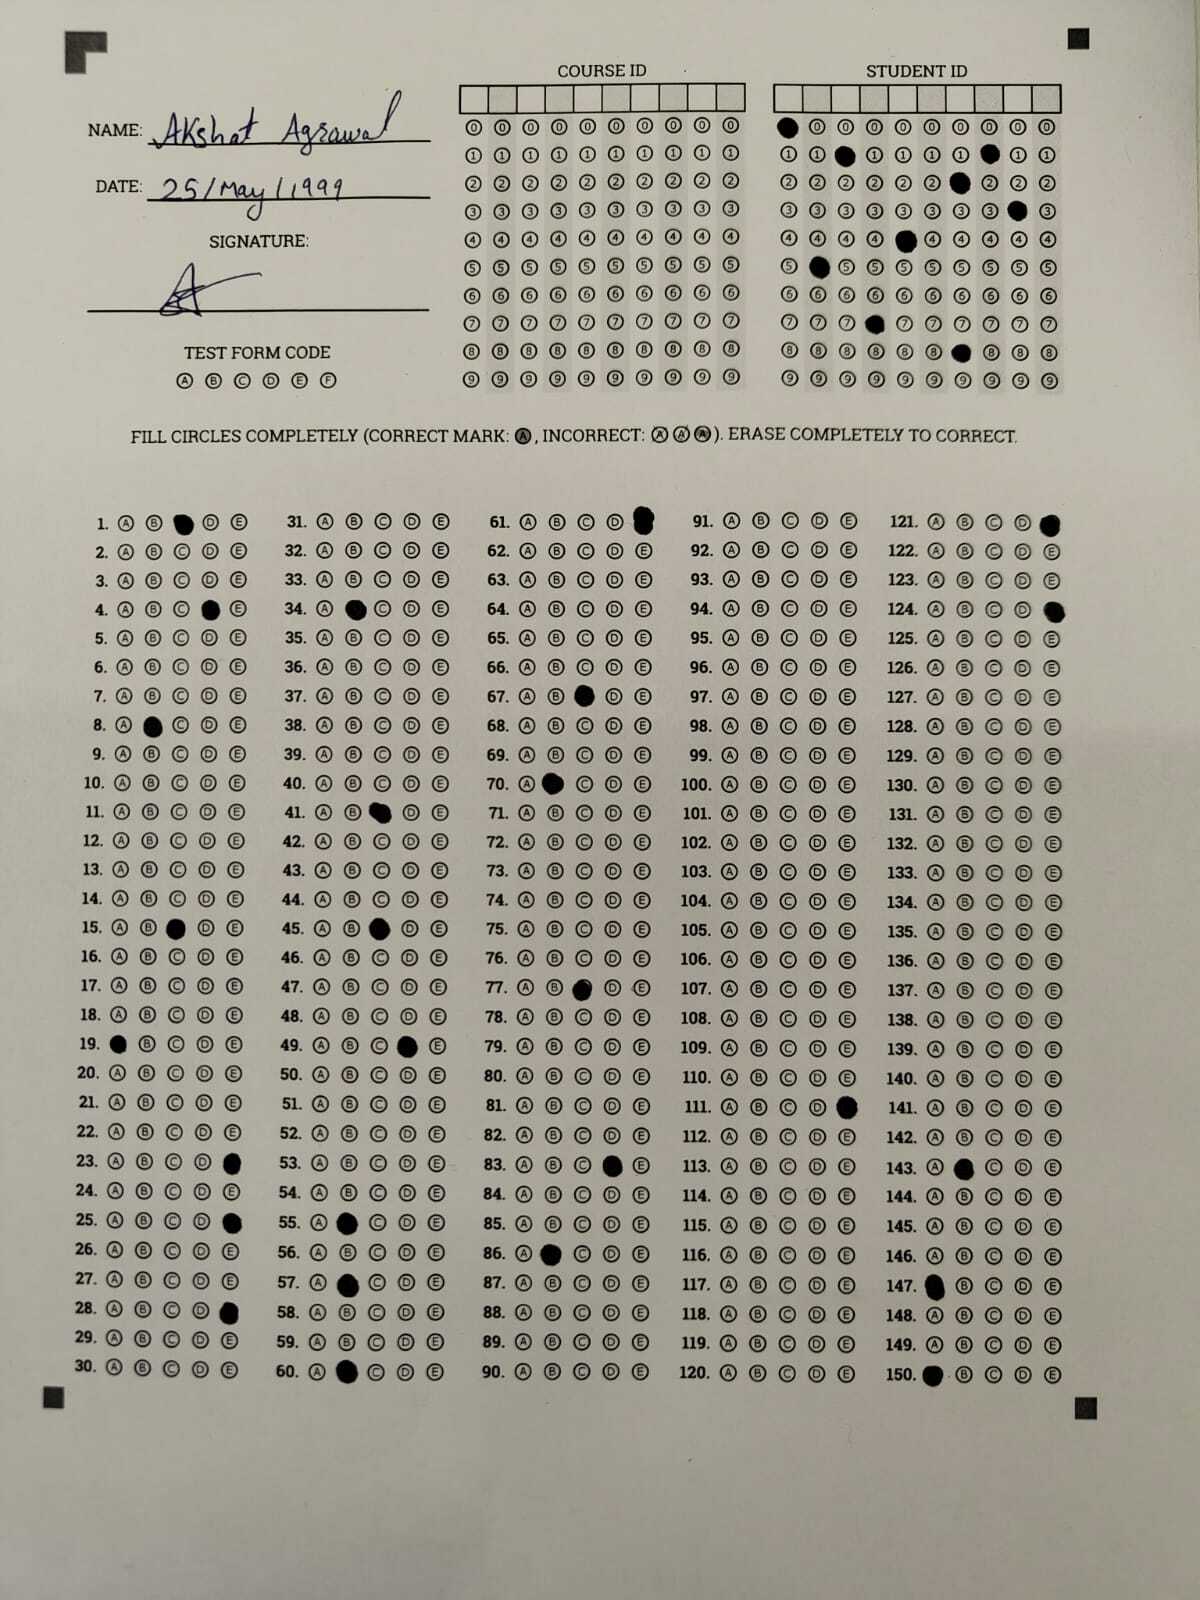 COURSE ID
STUDENT ID
NAME: Akshat Agrawal
DATE: 25/May/1999
SIGNATURE:
TEST FORM CODE
A B C D E F
0 0 0 0 0 0 0 0 0 0
1 1 1 1 1 1 1 1 1 1
2 2 2 2 2 2 2 2 2 2
3 3 3 3 3 3 3 3 3 3
4 4 4 4 4 4 4 4 4 4
5 5 5 5 5 5 5 5 5 5
6 6 6 6 6 6 6 6 6 6
7 7 7 7 7 7 7 7 7 7
8 8 8 8 8 8 8 8 8 8
9 9 9 9 9 9 9 9 9 9
0 0 0 0 0 0 0 0 0
1 1 1 1 1 1 1 1
2 2 2 2 2 2 2 2 2
3 3 3 3 3 3 3 3 3
4 4 4 4 4 4 4 4 4
5 5 5 5 5 5 5 5 5
6 6 6 6 6 6 6 6 6 6
7 7 7 7 7 7 7 7 7
8 8 8 8 8 8 8 8 8
9 9 9 9 9 9 9 9 9 9
FILL CIRCLES COMPLETELY (CORRECT MARK: A, INCORRECT: A A A). ERASE COMPLETELY TO CORRECT.
1. A B D E
2. A B C D E
3. A B C D E
4. A B C E
5. A B C D E
6. A B C D E
7. A B C D E
8. A C D E
9. A B C D E
10. A B C D E
11. A B C D E
12. A B C D E
13. A B C D E
14. A B C D E
15. A B D E
16. A B C D E
17. A B C D E
18. A B C D E
19. B C D E
20. A B C D E
21. A B C D E
22. A B C D E
23. A B C D
24. A B C D E
25. A B C D
26. A B C D E
27. A B C D E
28. A B C D
29. A B C D E
30. A B C D E
31. A B C D E
32. A B C D E
33. A B C D E
34. A C D E
35. A B C D E
36. A B C D E
37. A B C D E
38. A B C D E
39. A B C D E
40. A B C D E
41. A B D E
42. A B C D E
43. A B C D E
44. A B C D E
45. A B D E
46. A B C D E
47. A B C D E
48. A B C D E
49. A B C E
50. A B C D E
51. A B C D E
52. A B C D E
53. A B C D E
54. A B C D E
55. A C D E
56. A B C D E
57. A C D E
58. A B C D E
59. A B C D E
60. A C D E
61. A B C D
62. A B C D E
63. A B C D E
64. A B C D E
65. A B C D E
66. A B C D E
67. A B D E
68. A B C D E
69. A B C D E
70. A C D E
71. A B C D E
72. A B C D E
73. A B C D E
74. A B C D E
75. A B C D E
76. A B C D E
77. A B D E
78. A B C D E
79. A B C D E
80. A B C D E
81. A B C D E
82. A B C D E
83. A B C E
84. A B C D E
85. A B C D E
86. A C D E
87. A B C D E
88. A B C D E
89. A B C D E
90. A B C D E
91. A B C D E
92. A B C D E
93. A B C D E
94. A B C D E
95. A B C D E
96. A B C D E
97. A B C D E
98. A B C D E
99. A B C D E
100. A B C D E
101. A B C D E
102. A B C D E
103. A B C D E
104. A B C D E
105. A B C D E
106. A B C D E
107. A B C D E
108. A B C D E
109. A B C D E
110. A B C D E
111. A B C D
112. A B C D E
113. A B C D E
114. A B C D E
115. A B C D E
116. A B C D E
117. A B C D E
118. A B C D E
119. A B C D E
120. A B C D E
121. A B C D
122. A B C D E
123. A B C D E
124. A B C D
125. A B C D E
126. A B C D E
127. A B C D E
128. A B C D E
129. A B C D E
130. A B C D E
131. A B C D E
132. A B C D E
133. A B C D E
134. A B C D E
135. A B C D E
136. A B C D E
137. A B C D E
138. A B C D E
139. A B C D E
140. A B C D E
141. A B C D E
142. A B C D E
143. A C D E
144. A B C D E
145. A B C D E
146. A B C D E
147. B C D E
148. A B C D E
149. A B C D E
150. B C D E